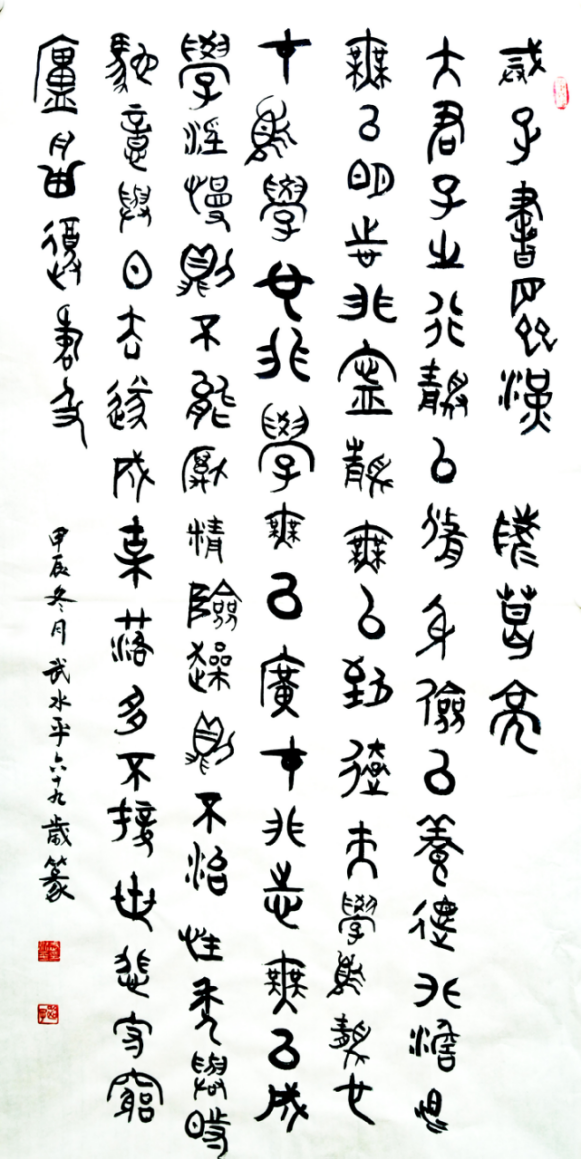 誡子書蜀漢 諸葛亮
夫君子之行靜以脩身儉以養德非澹
無以明志非寧靜無以致遠夫學須靜也
才須學也非學無以廣才非志無以成
學淫慢則不能勵精險躁則不冶性年與時
馳意與日去遂成枯落多不接世悲守窮
廬將復何及
甲辰冬月武水平六十九歲篆